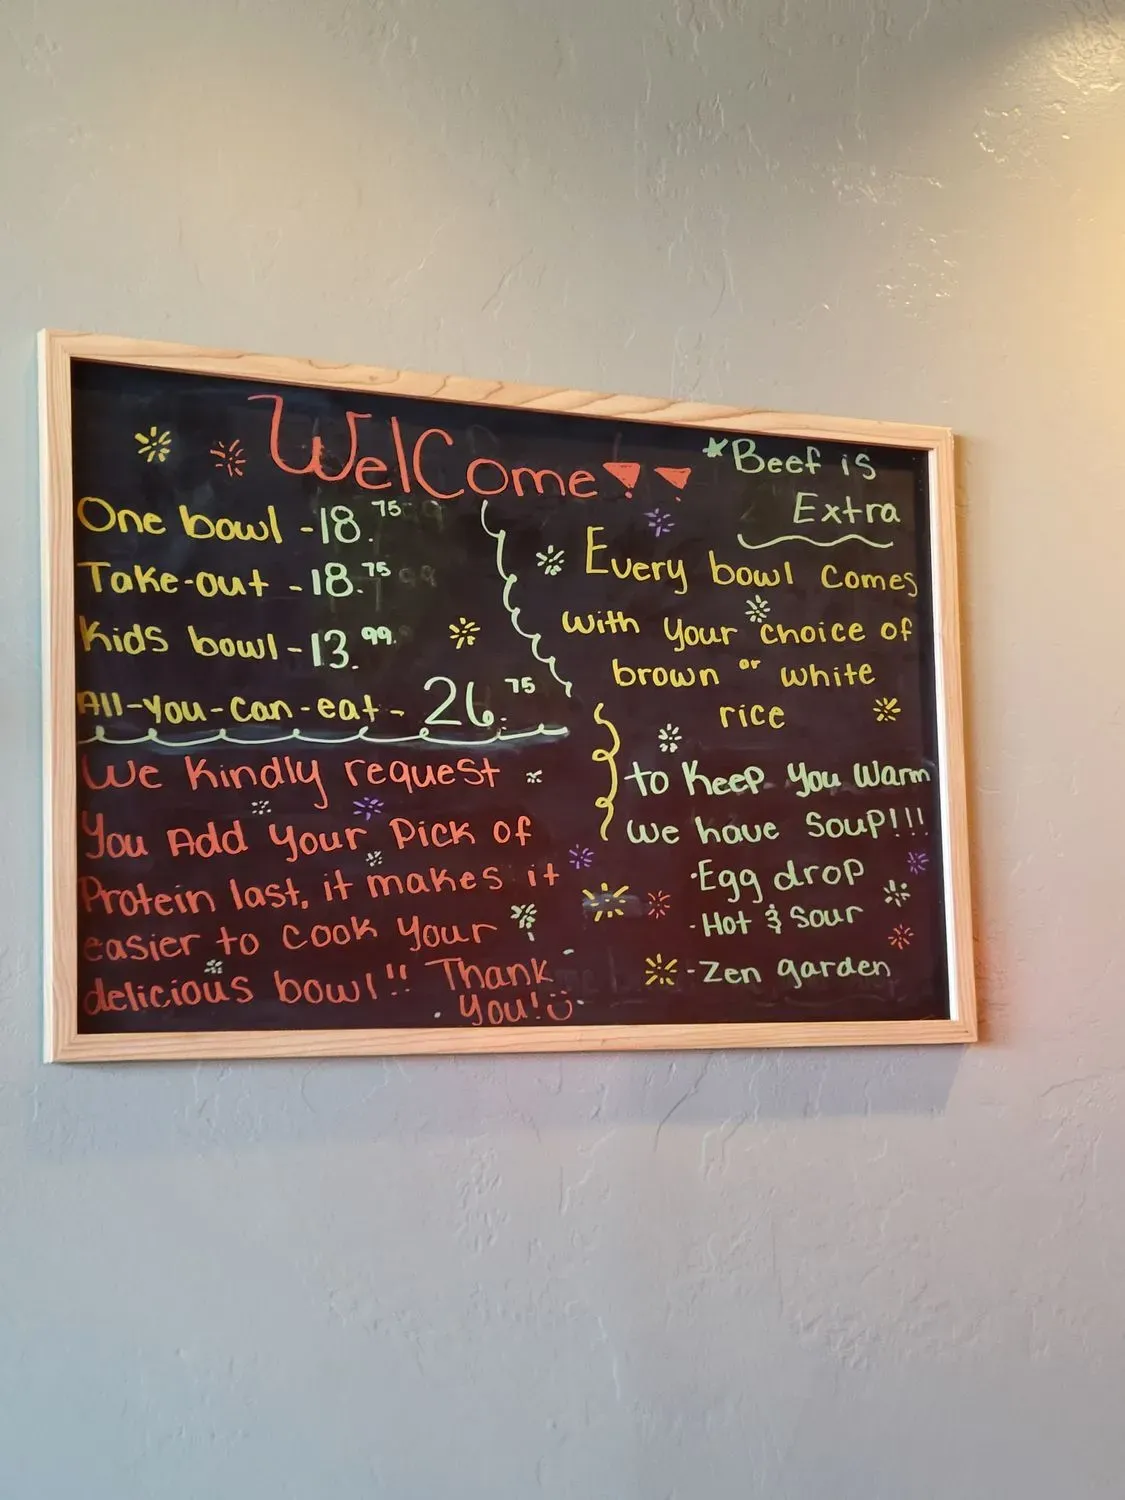 WelCome!!
One bowl - 18.75
Take-out - 18.75
Kids bowl - 13.99
All-you-can-eat - 26.75
We kindly request
You Add your Pick of
Protein last, it makes it
easier to cook your
delicious bowl!! Thank
you!
*Beef is
Extra
Every bowl comes
with your choice of
brown or white
rice
to Keep you warm
we have soup!!!
·Egg drop
·Hot & Sour
-Zen garden